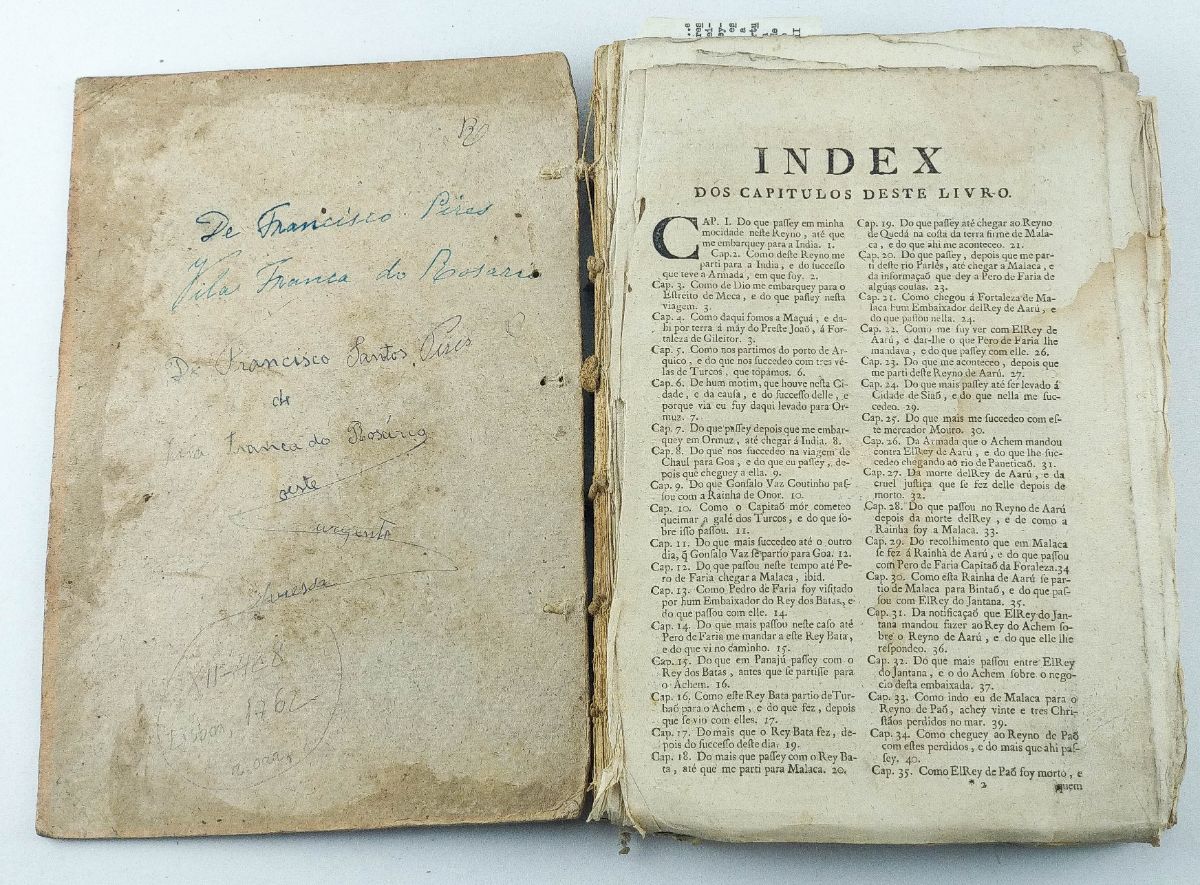 De Francisco Pires
Vila Franca do Rosario
De Francisco Santos Pires
de
Franca do Rosário
oeste
XII-428
Lisboa 1762
INDEX
DOS CAPITULOS DESTE LIVRO.
CAP. I. Do que passey em minha
mocidade neste Reyno, até que
me embarquey para a India. 1.
Cap. 2. Como deste Reyno me
parti para a India, e do successo
que teve a Armada, em que fuy. 2.
Cap. 3. Como de Dio me embarquey para o
Estreito de Meca, e do que passey nesta
viagem. 3.
Cap. 4. Como daqui fomos a Maçuá, e da-
hi por terra á mãy do Preste Joaõ, á For-
taleza de Gileitor. 3.
Cap. 5. Como nos partimos do porto de Ar-
quico, e do que nos succedeo com tres vé-
las de Turcos, que topámos. 6.
Cap. 6. De hum motim, que houve nesta Ci-
dade, e da causa, e do successo delle, e
porque via eu fuy daqui levado para Or-
muz. 7.
Cap. 7. Do que passey depois que me embar-
quey em Ormuz, até chegar á India. 8.
Cap. 8. Do que nos succedeo na viagem de
Chaul para Goa, e do que eu passey, de-
pois que cheguey a ella. 9.
Cap. 9. Do que Gonsalo Vaz Coutinho pas-
sou com a Rainha de Onor. 10.
Cap. 10. Como o Capitaõ mór cometeo
queimar a galé dos Turcos, e do que so-
bre isso passou. 11.
Cap. 11. Do que mais succedeo até o outro
dia, q̃ Gonsalo Vaz se partio para Goa. 12.
Cap. 12. Do que passou neste tempo até Pe-
ro de Faria chegar a Malaca, ibid.
Cap. 13. Como Pedro de Faria foy visitado
por hum Embaixador do Rey dos Batas, e
do que passou com elle. 14.
Cap. 14. Do que mais passou neste caso até
Pero de Faria me mandar a este Rey Bata,
e do que vi no caminho. 15.
Cap. 15. Do que em Panajú passey com o
Rey dos Batas, antes que se partisse para
o Achem. 16.
Cap. 16. Como este Rey Bata partio de Tur-
baõ para o Achem, e do que fez, depois
que se vio com elles. 17.
Cap. 17. Do mais que o Rey Bata fez, de-
pois do successo deste dia. 19.
Cap. 18. Do mais que passey com o Rey Ba-
ta, até que me parti para Malaca. 20.
Cap. 19. Do que passey até chegar ao Reyno
de Quedá na costa da terra firme de Mala-
ca, e do que ahi me aconteceo. 21.
Cap. 20. Do que passey, depois que me par-
ti deste rio Parlês, até chegar a Malaca, e
da informaçaõ que dey a Pero de Faria de
algũas cousas. 23.
Cap. 21. Como chegou á Fortaleza de Ma-
laca hum Embaixador delRey de Aarú, e
do que passou nella. 24.
Cap. 22. Como me fuy ver com ElRey de
Aarú, e dar-lhe o que Pero de Faria lhe
mandava, e do que passey com elle. 26.
Cap. 23. Do que me aconteceo, depois que
me parti deste Reyno de Aarú. 27.
Cap. 24. Do que mais passey até ser levado á
Cidade de Siaõ, e do que nella me suc-
cedeo. 29.
Cap. 25. Do que mais me succedeo com es-
te mercador Mouro. 30.
Cap. 26. Da Armada que o Achem mandou
contra ElRey de Aarú, e do que lhe suc-
cedeo chegando ao rio de Paneticaõ. 31.
Cap. 27. Da morte delRey de Aarú, e da
cruel justiça que se fez delle depois de
morto. 32.
Cap. 28. Do que passou no Reyno de Aarú
depois da morte delRey, e de como a
Rainha foy a Malaca. 33.
Cap. 29. Do recolhimento que em Malaca
se fez á Rainha de Aarú, e do que passou
com Pero de Faria Capitaõ da Foraleza. 34
Cap. 30. Como esta Rainha de Aarú se par-
tio de Malaca para Bintaõ, e do que pas-
sou com ElRey do Jantana. 35.
Cap. 31. Da notificaçaõ que ElRey do Jan-
tana mandou fazer ao Rey do Achem so-
bre o Reyno de Aarú, e do que elle lhe
respondeo. 36.
Cap. 32. Do que mais passou entre ElRey
do Jantana, e o do Achem sobre o nego-
cio desta embaixada. 37.
Cap. 33. Como indo eu de Malaca para o
Reyno de Paõ, achey vinte e tres Chri-
stãos perdidos no mar. 39.
Cap. 34. Como cheguey ao Reyno de Paõ
com estes perdidos, e do mais que ahi pas-
sey. 40.
Cap. 35. Como ElRey de Paõ foy morto, e
* 2
quem